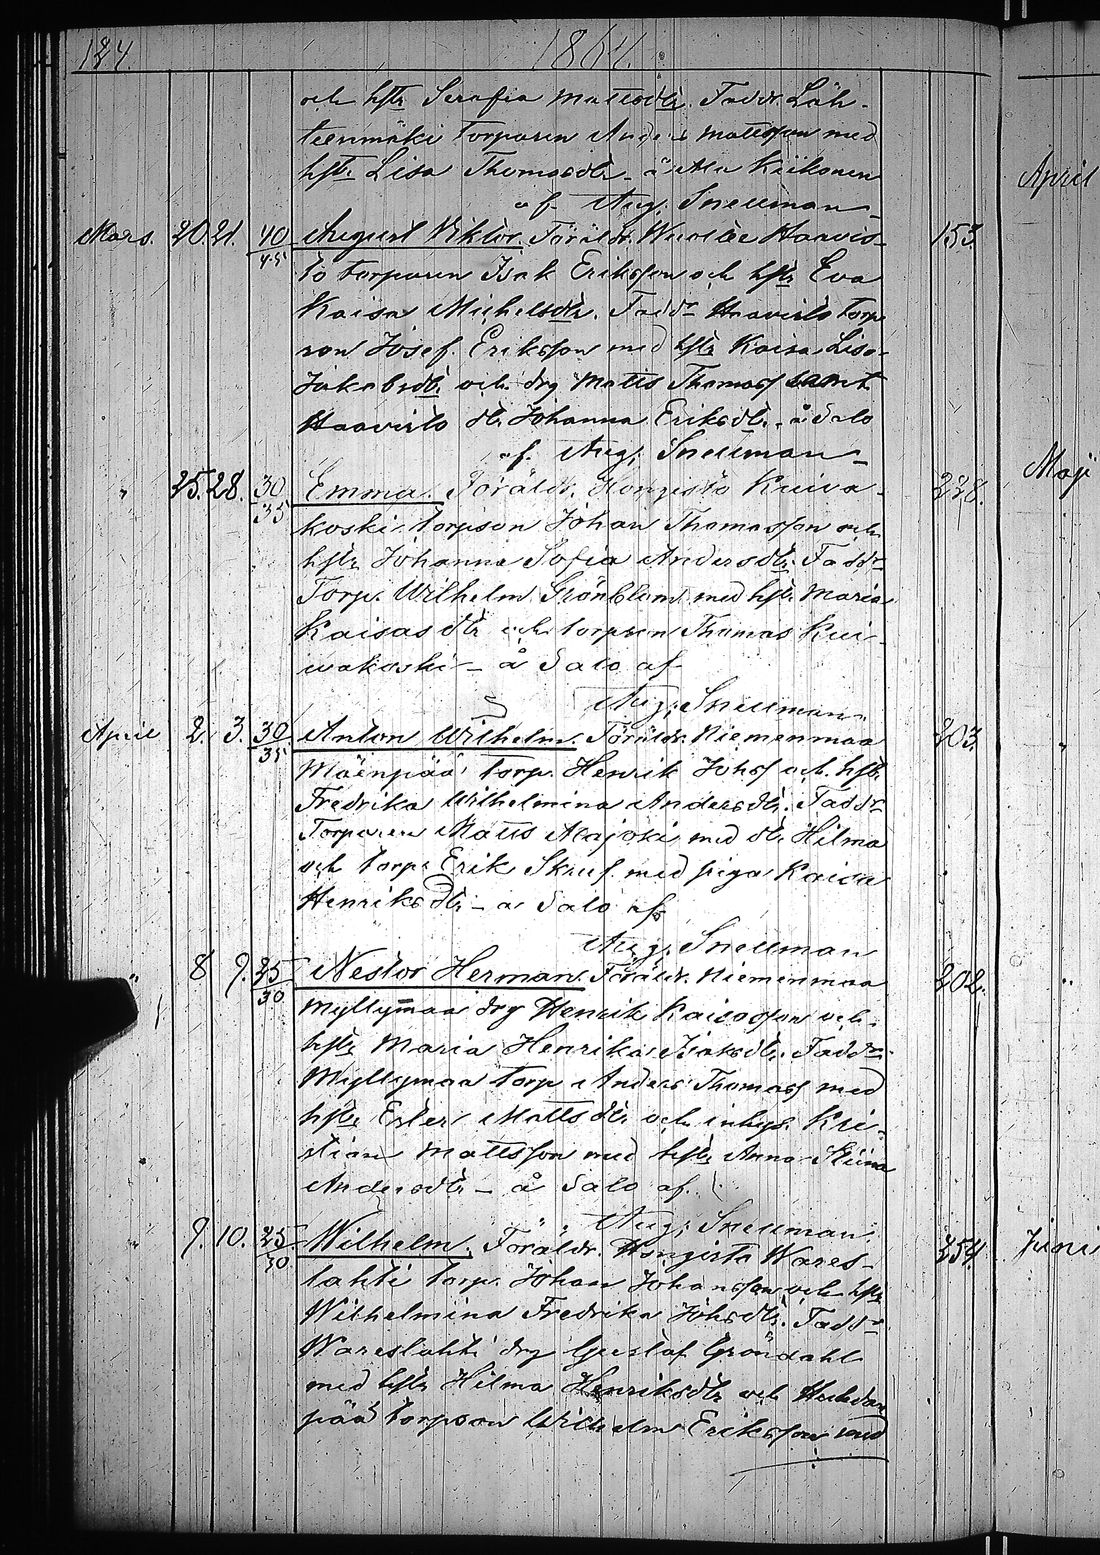 184. 1864.
och hstr Serafia Mattsdtr. Faddr. Läh-
teenmäki torparen Anders Mattsson med
hstr Lisa Thomasdtr - å Ala Kiikonen
af Aug. Snellman -
Mars. 20. 21. 40/45 August Viktor. Föräldr. Haavis- 153.
to torparen Isak Eriksson och hstr Eva
Kaisa Michelsdtr. Faddr Haavisto torpa
ren Josef Eriksson med hstr Kaisa Lisa
Jakobsdtr. och drg Matts Thomass samt
Haavisto dtr Johanna Eriksdtr. - å Salo
af. Aug. Snellman -
" 25. 28. 30/35 Emma. Föräldr. Hongisto Kuiva- 228.
koski torparen Johan Thomasson och
hstr Johanna Sofia Andersdtr. Faddr
Torp. Wilhelm Grönblom med hstr Maria
Kaisasdtr och torparen Thomas Kui-
wakoski - å Salo af
Aug. Snellman.
April 2. 3. 30/35 Anton Wilhelm. Föräldr. Niemenmaa 203.
Mäenpää torp. Henrik Johss och hstr
Fredrika Wilhelmina Andersdtr. Faddr
Torparen Matts Alajoki med dtr Hilma
och torp. Erik Skruf med piga Kaisa
Henriksdtr - å Salo af
Aug. Snellman
" 8 9. 25/30 Nestor Herman. Föräldr. Niemenmaa 202.
Myllymaa drg Henrik Kaisasson och
hstr Maria Henrika Isaksdtr. Faddr
Myllymaa torp Anders Thomass med
hstr Ester Mattsdtr och inhys. Kri-
stian Mattsson med hstr Anna Stiina
Andersdtr - å Salo af.
Aug. Snellman.
" 9. 10. 25/30 Wilhelm. Föräldr. Hongisto Wares- 254.
lahti torp. Johan Johansson och hstr
Wilhelmina Fredrika Johsdtr. Faddr
Wareslahti drg Gustaf Gröndahl
med hstr Hilma Henriksdtr och
pää torparen Wilhelm Eriksson med
April
Maji
"
"
"
Juni